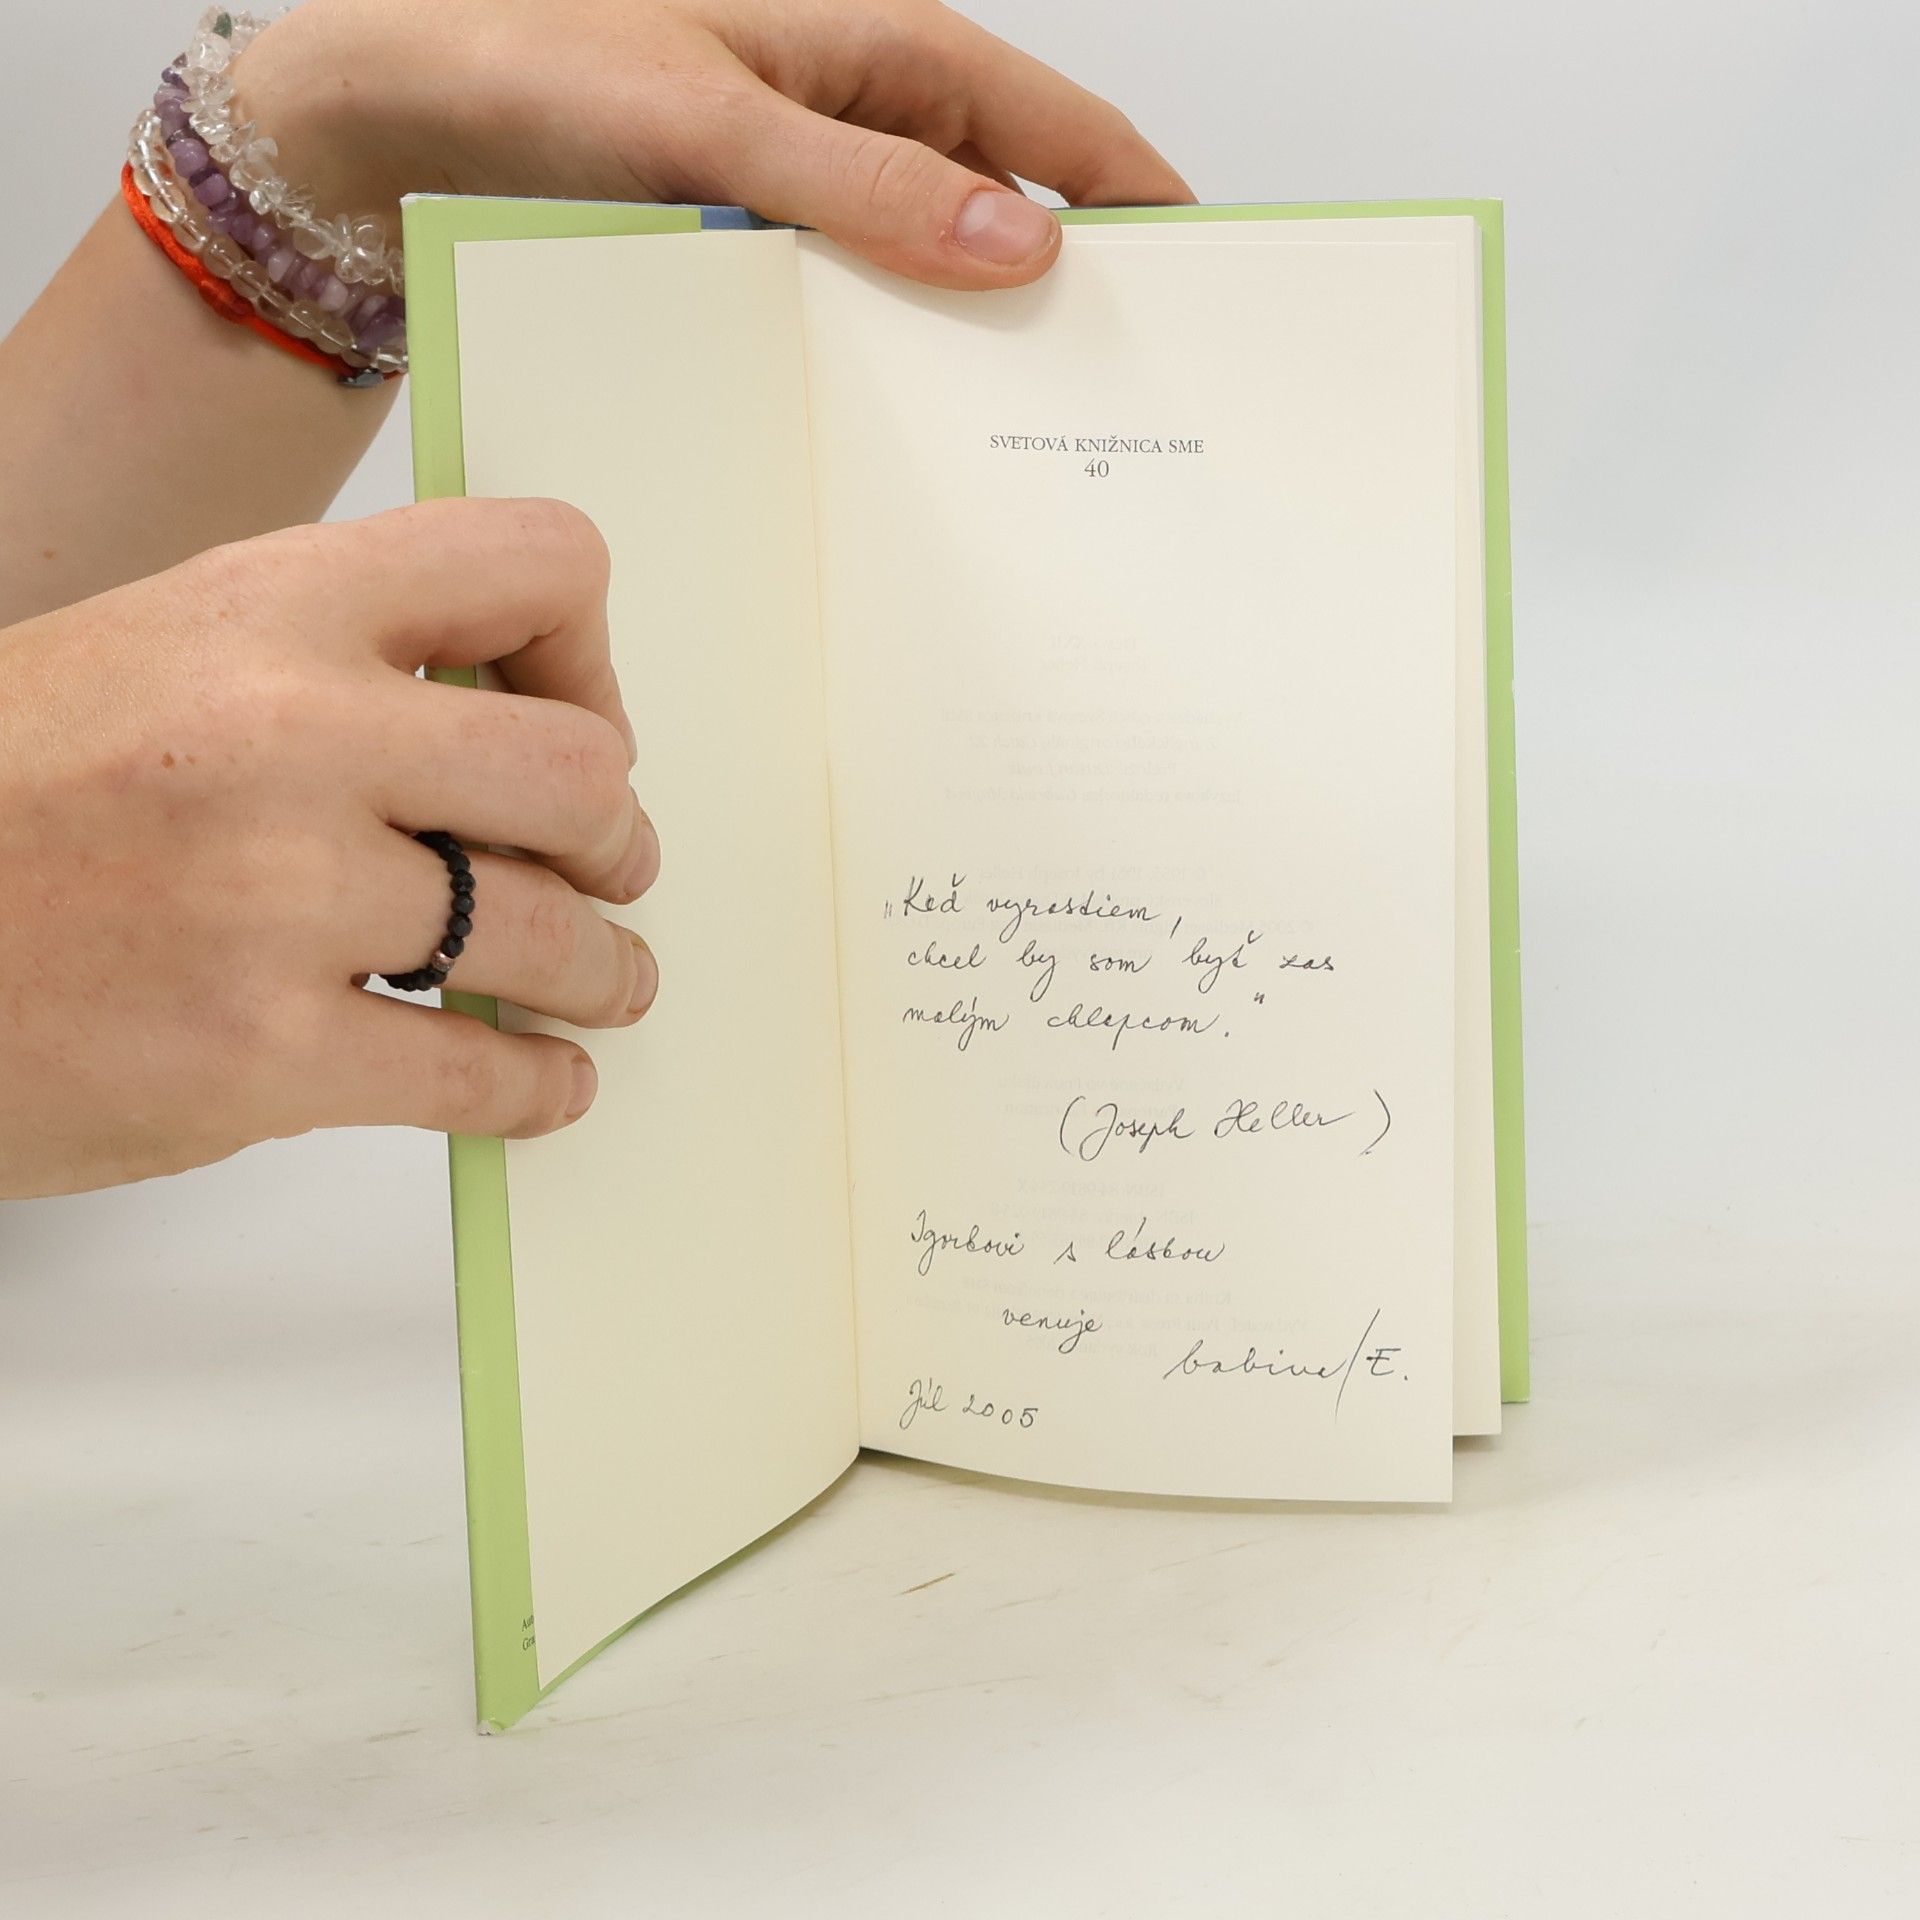 SVETOVÁ KNIŽNICA SME
40
„Keď vyrastiem,
chcel by som byť zas
malým chlapcom."
(Joseph Heller)
Igorkovi s láskou
venuje
babina/E.
Júl 2005